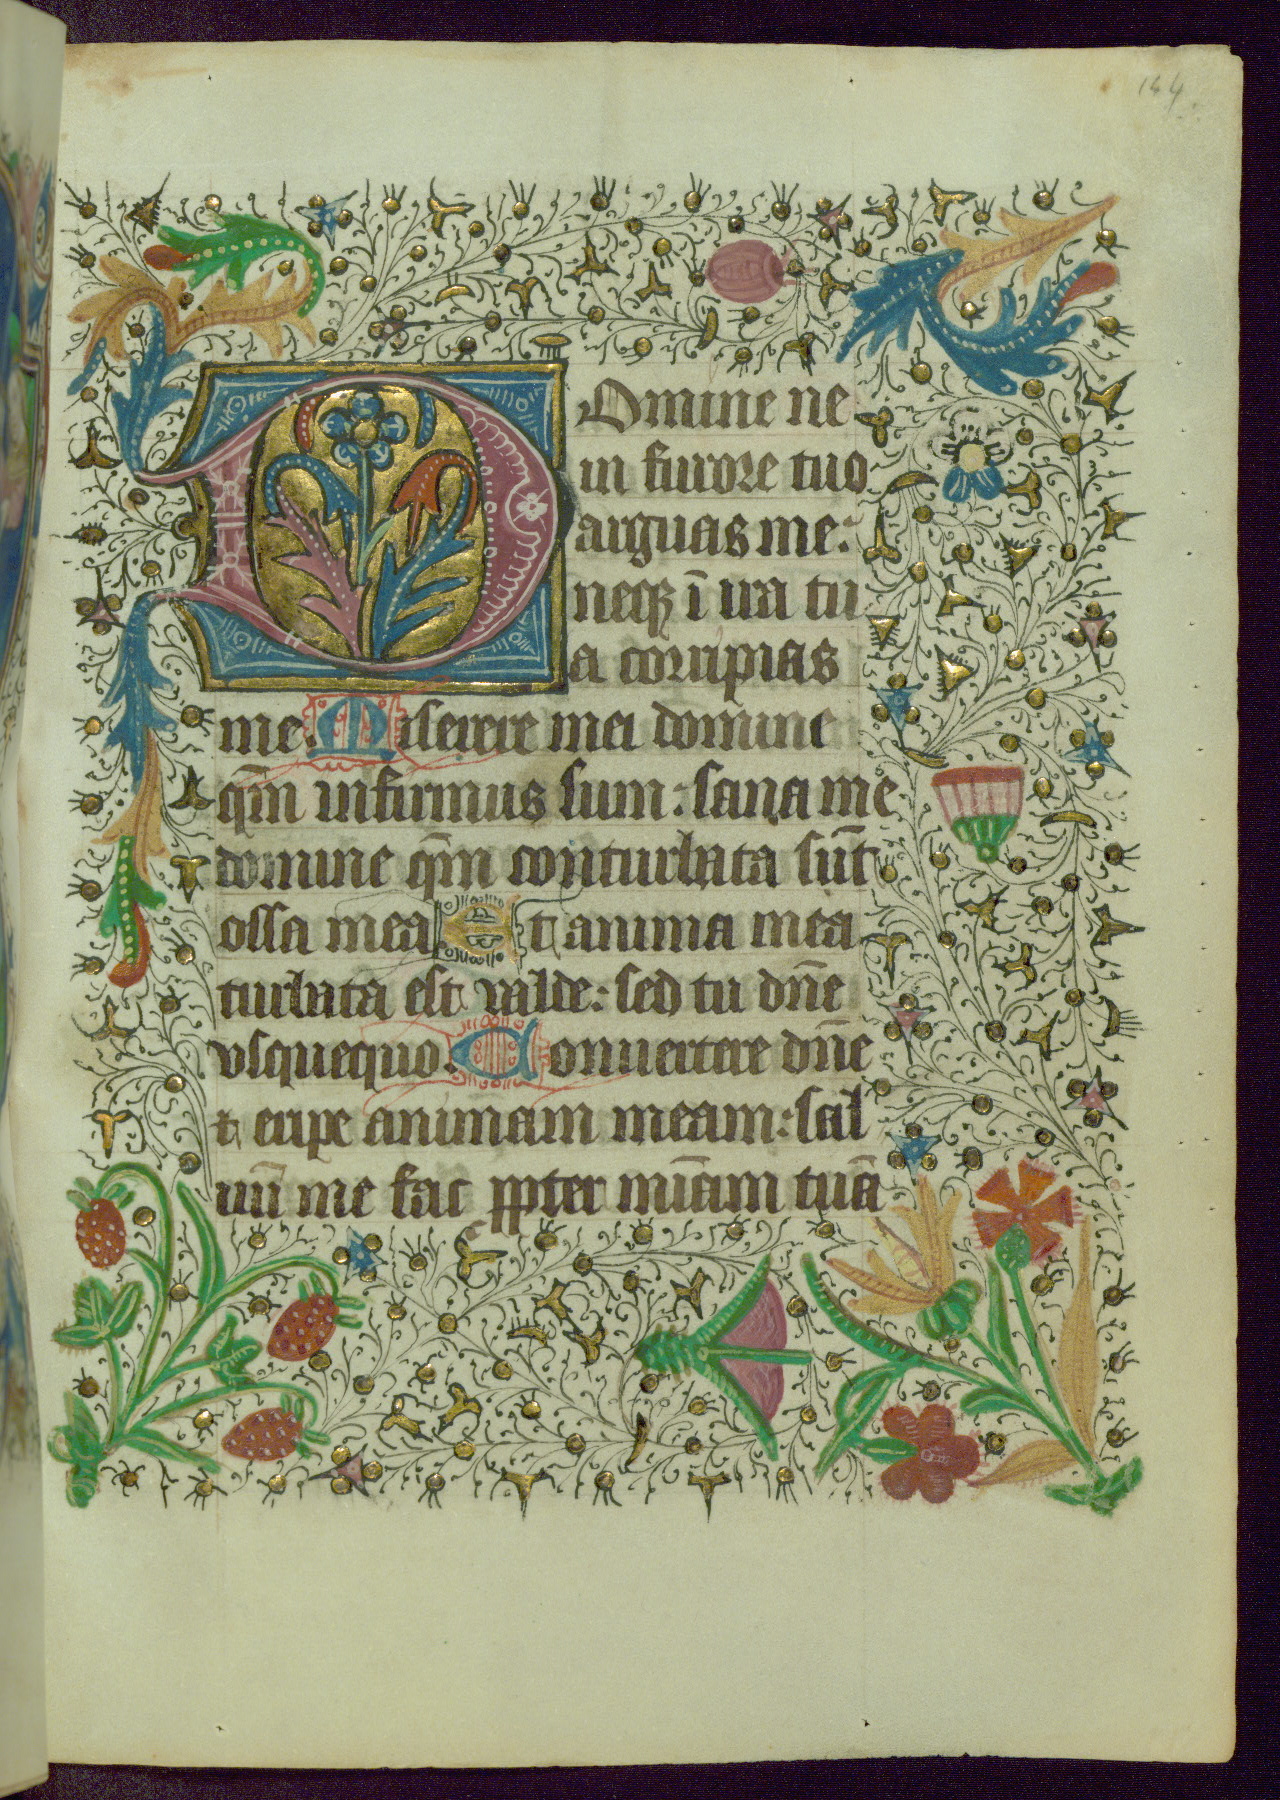 144
Domine ne
in furore tuo
arguas me:
neqꝫ ī ira tu
a corripias
me. Miserere mei domine
qm̄ infirmus sum: sana me
domine qm̄ conturbata sūt
ossa mea Et anima mea
turbata est valde: sed tu dn̄e
vsquequo. Conuertere dn̄e
⁊ eripe animam meam: sal
uū me fac ꝓpter mīam tuā